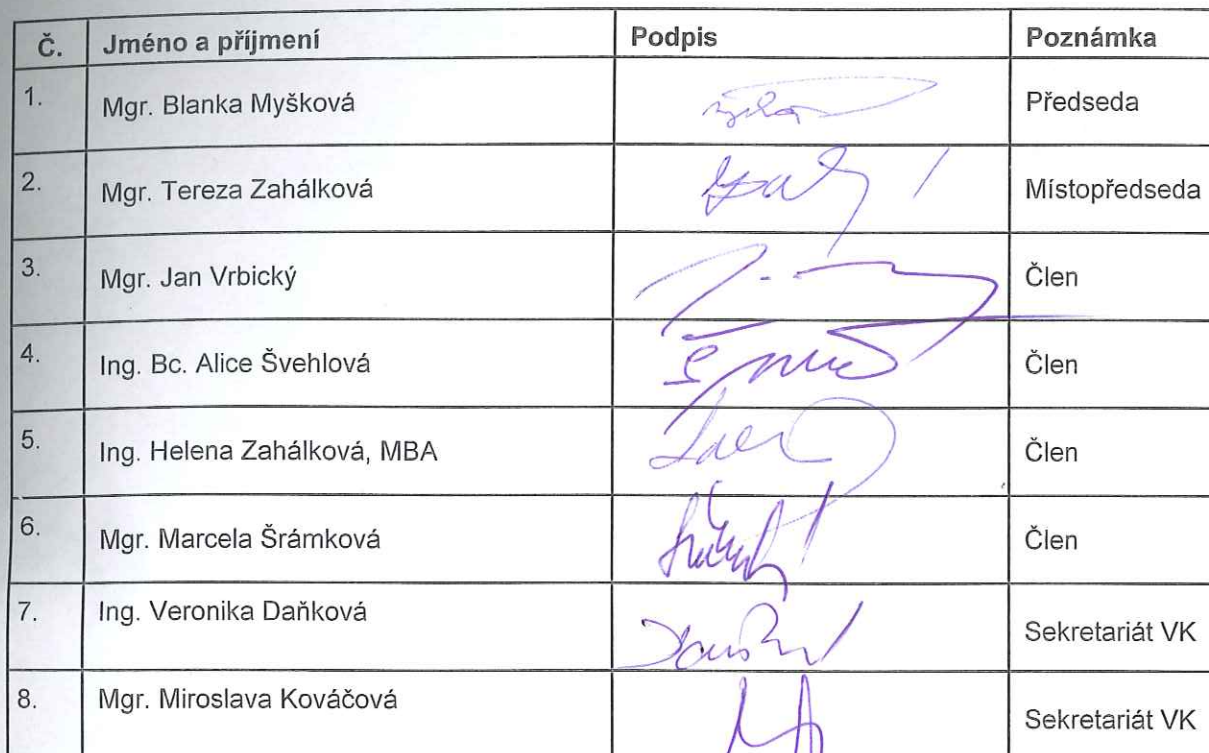 Č. Jméno a příjmení Podpis Poznámka
1. Mgr. Blanka Myšková Předseda
2. Mgr. Tereza Zahálková Místopředseda
3. Mgr. Jan Vrbický Člen
4. Ing. Bc. Alice Švehlová Člen
5. Ing. Helena Zahálková, MBA Člen
6. Mgr. Marcela Šrámková Člen
7. Ing. Veronika Daňková Sekretariát VK
8. Mgr. Miroslava Kováčová Sekretariát VK